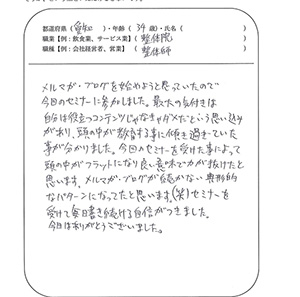 都道府県（愛知）・年齢（34歳）・氏名（　　　）
職業【例：飲食業、サービス業】（整体院）
職種【例：会社経営者、営業】（整体師）
メルマガ・ブログを始めようと思っていたので
今回のセミナーに参加しました。最大の気付きは
自分は役立つコンテンツじゃなきゃダメだという思い込み
があり、頭の中が教育する事に傾き過ぎていた
事が分かりました。今回のセミナーを受けた事によって
頭の中がフラットになり良い意味で力が抜けたと
思います。メルマガ・ブログが続かない典型的
なパターンになってたと思います。(笑)セミナーを
受けて毎日書き続ける自信がつきました。
今日はありがとうございました。